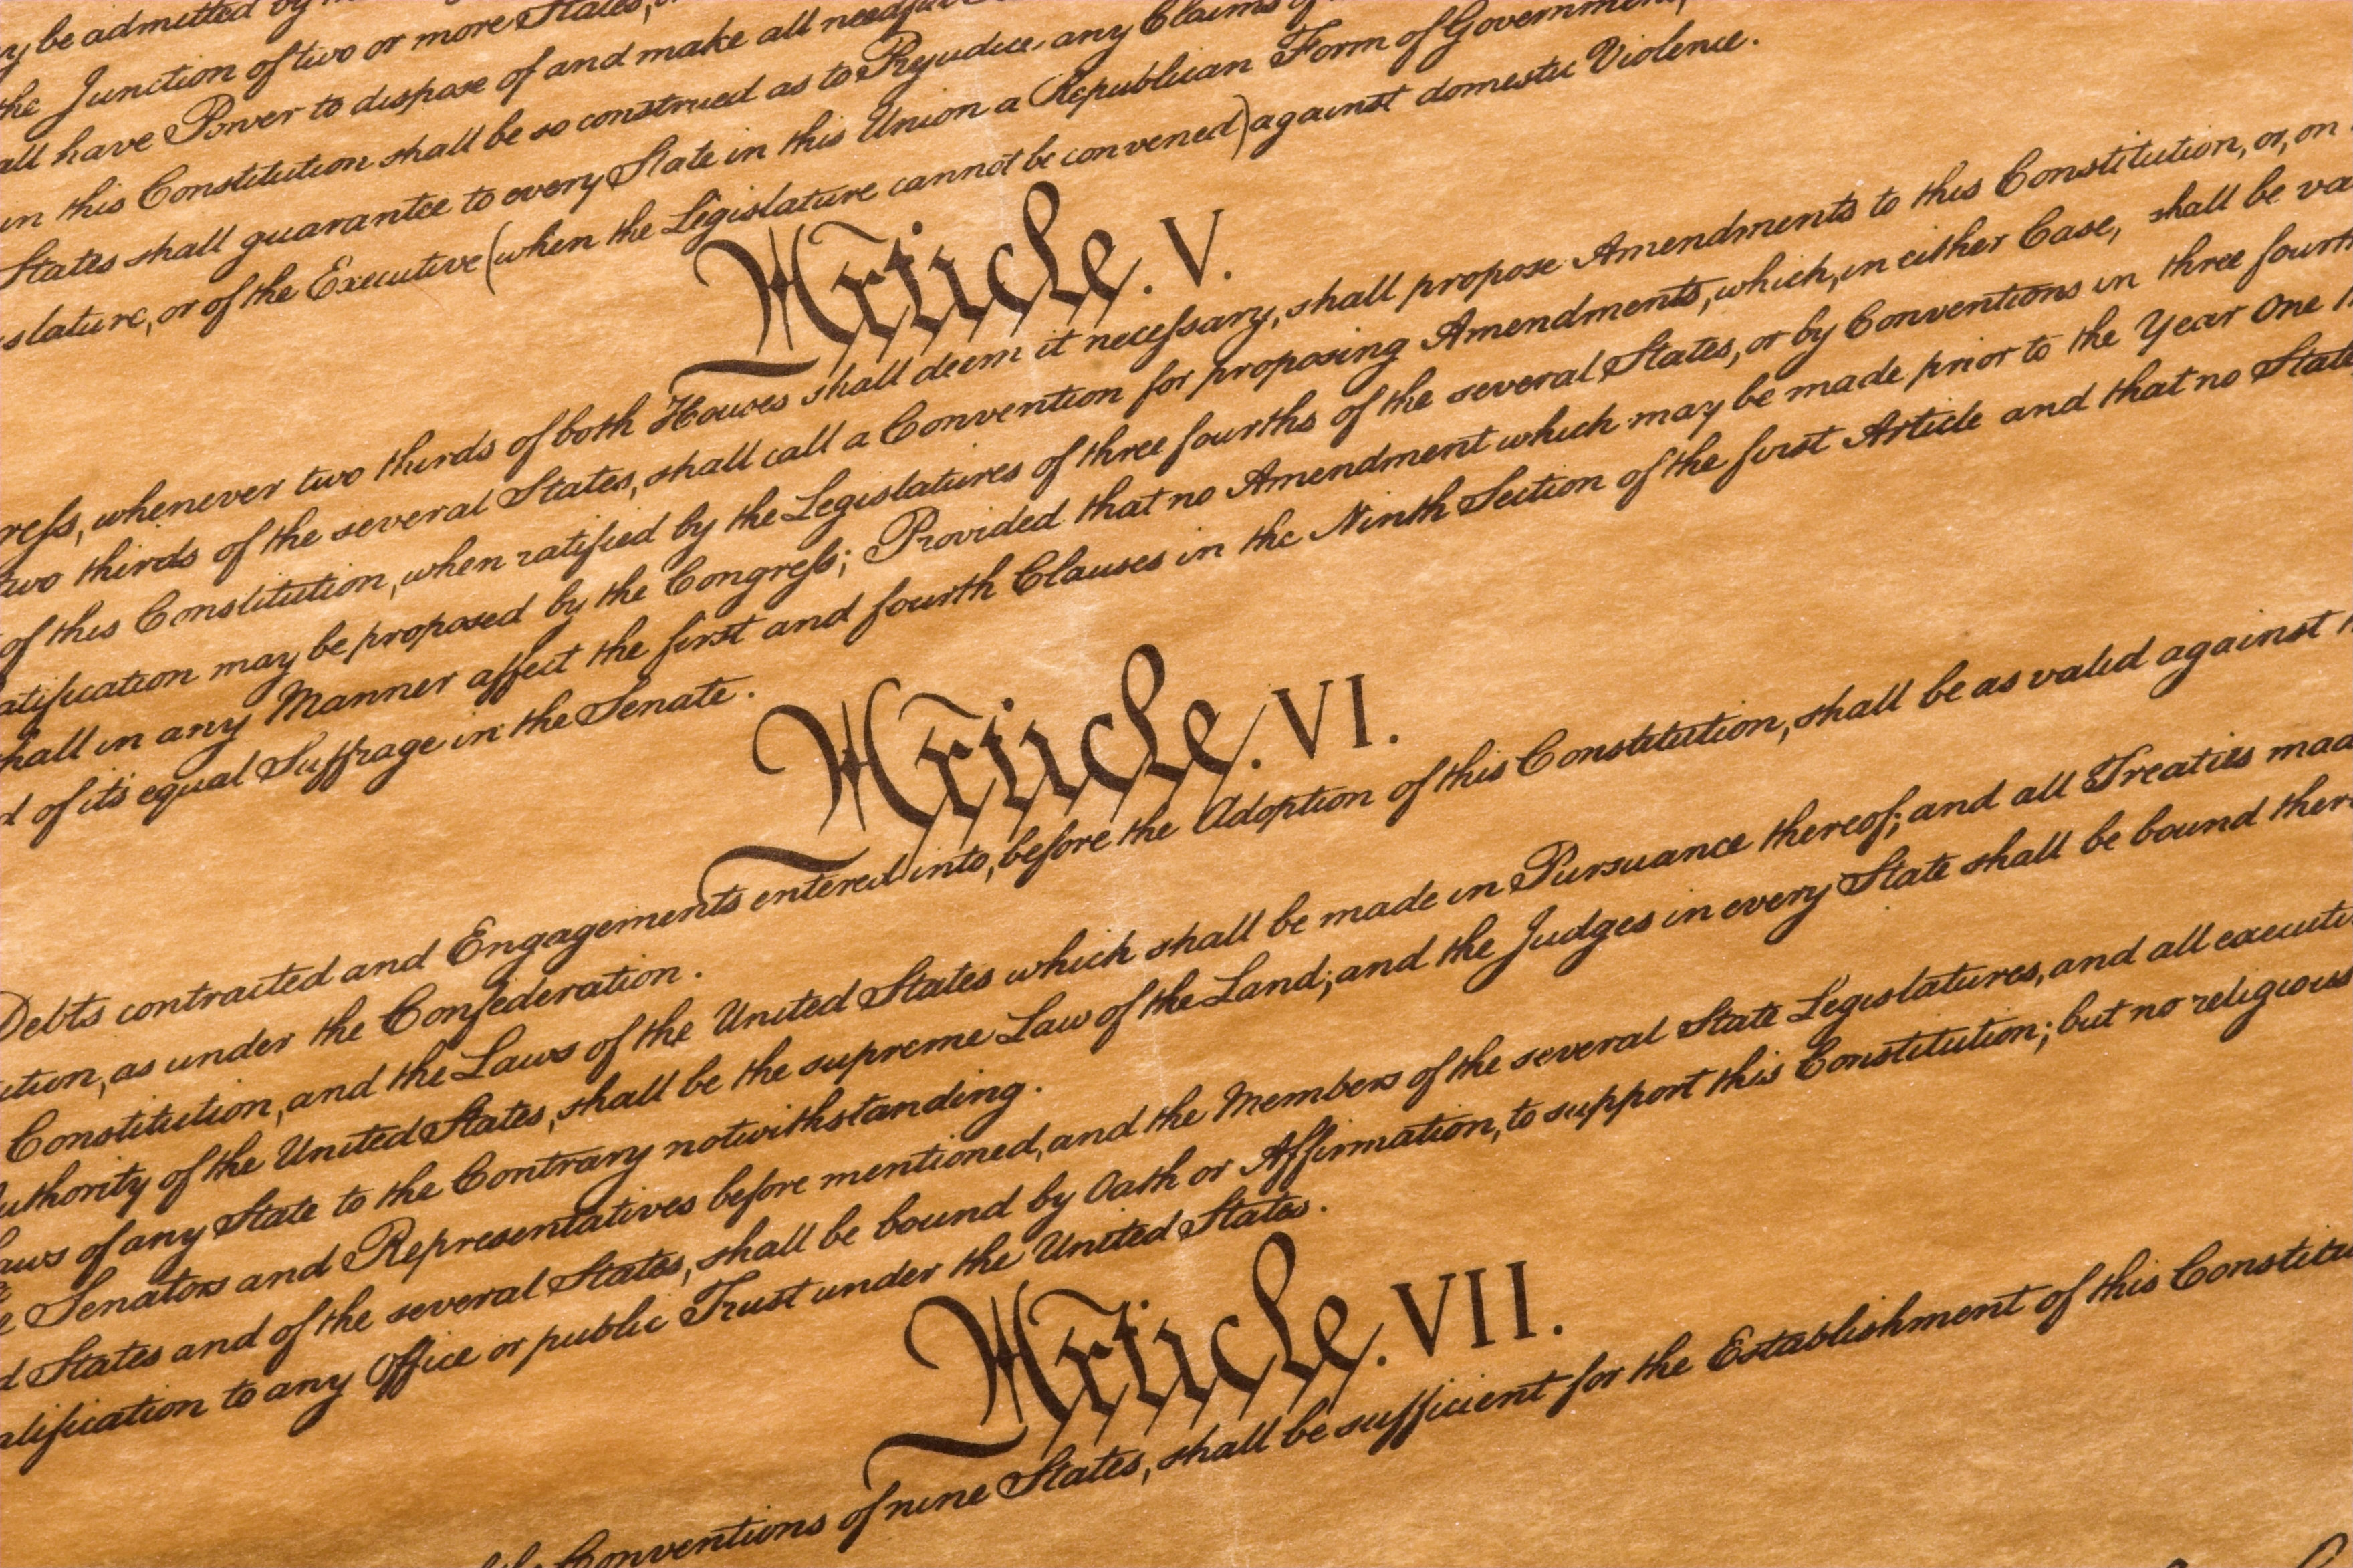 be admitted by
the Junction of two or more States,
all have Power to dispose of and make all needful
in this Constitution shall be so construed as to Prejudice any Claims of
States shall guarantee to every State in this Union a Republican Form of Government,
slature, or of the Executive (when the Legislature cannot be convened) against domestic Violence.
Article. V.
ress, whenever two thirds of both Houses shall deem it necessary, shall propose Amendments to this Constitution, or, on
two thirds of the several States, shall call a Convention for proposing Amendments, which, in either Case, shall be va
of this Constitution, when ratified by the Legislatures of three fourths of the several States, or by Conventions in three fourth
atification may be proposed by the Congress; Provided that no Amendment which may be made prior to the Year One
hall in any Manner affect the first and fourth Clauses in the Ninth Section of the first Article and that no State
d of its equal Suffrage in the Senate.
Article. VI.
Debts contracted and Engagements entered into, before the Adoption of this Constitution, shall be as valid against
ution, as under the Confederation.
Constitution, and the Laws of the United States which shall be made in Pursuance thereof; and all Treaties mad
uthority of the United States, shall be the supreme Law of the Land; and the Judges in every State shall be bound there
aws of any State to the Contrary notwithstanding.
e Senators and Representatives before mentioned, and the Members of the several State Legislatures, and all executi
d States and of the several States, shall be bound by Oath or Affirmation, to support this Constitution; but no religious
alification to any Office or public Trust under the United States.
Article. VII.
Conventions of nine States, shall be sufficient for the Establishment of this Constitu